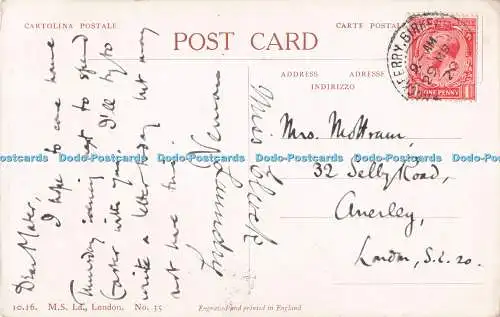 CARTOLINA POSTALE
CARTE POSTALE
POST CARD
ADDRESS
ADRESSE
INDIRIZZO
Dear Mater,
I hope to come home
Thursday evening next to spend
Easter with you. I'll try to
write a letter today but may
not have time.
Miss Clark
Mrs. Mottram,
32 Selby Road,
Anerley,
London, S.E. 20.
FERRY. BIRKE
AM
20 MR
ONE PENNY
10.16. M.S. Ld., London. No. 35
Engraved and printed in England
Dodo-Postcards Dodo-Postcards Dodo-Postcards Dodo-Postcards Dodo-Postcards Dodo-Postcards